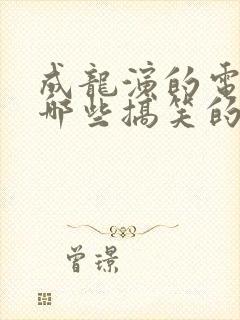 成龍演的電
哪些搞笑的
曾璟